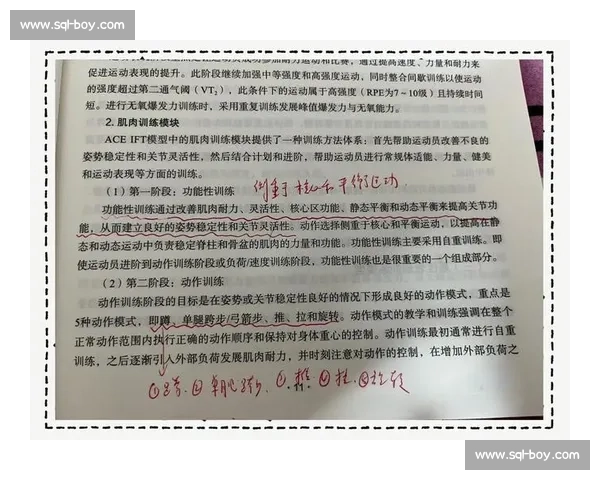 www.sql-boy.com
促进运动表现的提升。此阶段继续加强中等强度和高强度运动，同时整合间歇训练以使运动
的强度超过第二通气阈（VT₂），此条件下的运动属于高强度（RPE为7～10级）且持续时间
短。进行无氧爆发力训练时，采用重复训练发展峰值爆发力与无氧能力。
2. 肌肉训练模块
ACE IFT模型中的肌肉训练模块提供了一种训练方法体系：首先帮助运动员改善不良的
姿势稳定性和关节灵活性，然后结合计划和进阶，帮助运动员进行常规体适能、力量、健美
和运动表现等方面的训练。
（1）第一阶段：功能性训练
侧重于核心和平衡运动
功能性训练通过改善肌肉耐力、灵活性、核心区功能、静态平衡和动态平衡来提高关节功
能，从而建立良好的姿势稳定性和关节灵活性。动作选择侧重于核心和平衡运动，以提高在静
态和动态运动中负责稳定脊柱和骨盆的肌肉的力量和功能。功能性训练主要采用自重训练。即
使运动员进阶到动作训练阶段或负荷/速度训练阶段，功能性训练也是很重要的一个组成部分。
（2）第二阶段：动作训练
动作训练阶段的目标是在姿势或关节稳定性良好的情况下形成良好的动作模式，重点是
5种动作模式，即蹲、单腿跨步/弓箭步、推、拉和旋转。动作模式的教学和训练强调在整个
正常动作范围内执行正确的动作顺序和保持对身体重心的控制。动作训练最初通常进行自重
训练，之后逐渐引入外部负荷发展肌肉耐力，并时刻注意对动作的控制，在增加外部负荷之
①蹲 ②单腿跨步 ③推 ④拉 ⑤旋转
www.sql-boy.com